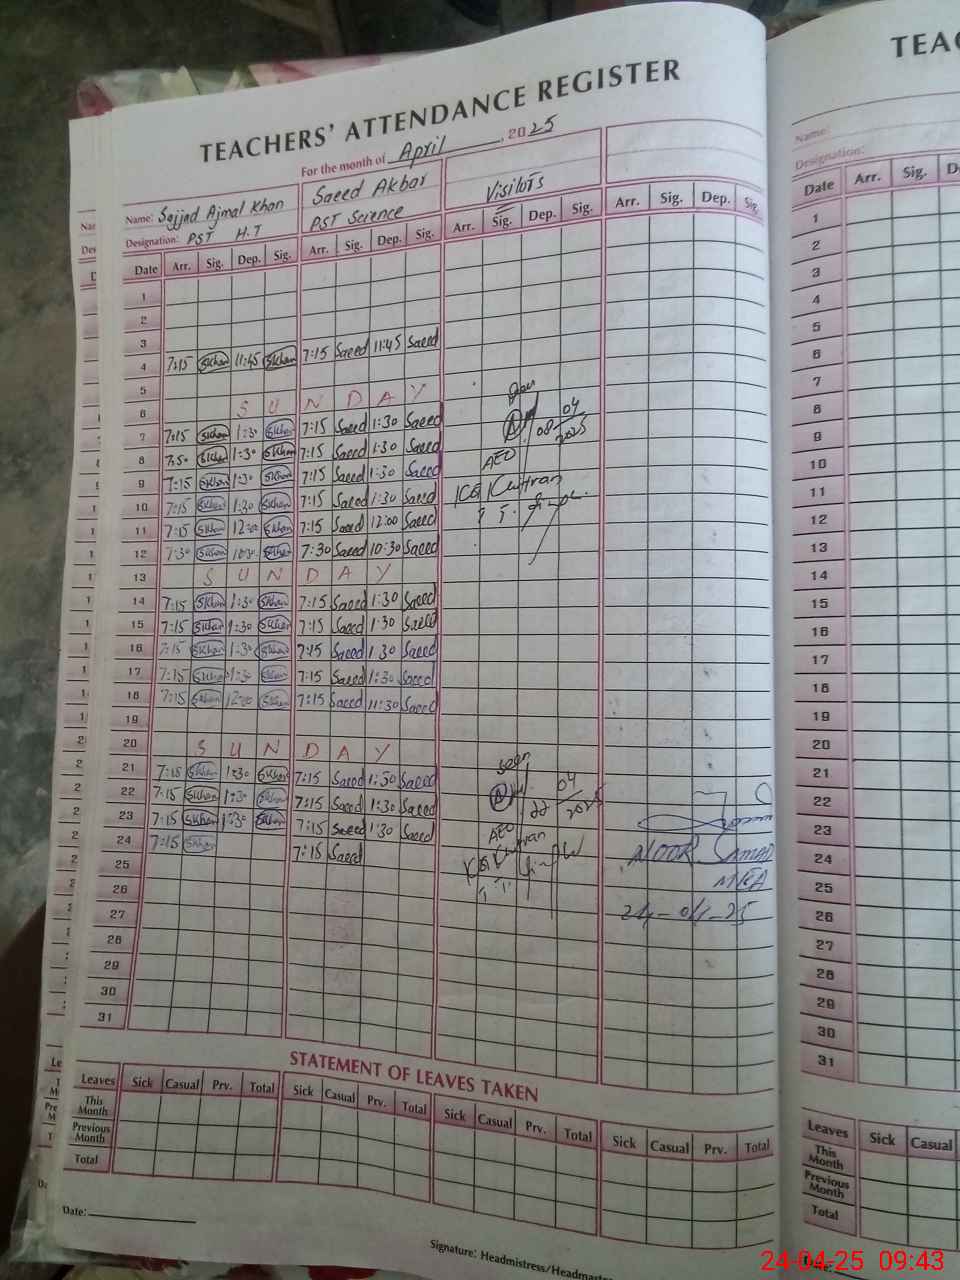 TEACHERS' ATTENDANCE REGISTER
For the month of April, 2025
Name: Sajjad Ajmal Khan Saeed Akbar Visitors
Designation: PST H.T PST Science
Date Arr. Sig. Dep. Sig. Arr. Sig. Dep. Sig. Arr. Sig. Dep. Sig. Arr. Sig. Dep. Sig.
1
2
3
4 7:15 SKhan 11:45 SKhan 7:15 Saeed 11:45 Saeed
5
6 SUNDAY
7 7:15 SKhan 1:30 SKhan 7:15 Saeed 1:30 Saeed
8 7:50 SKhan 1:30 SKhan 7:15 Saeed 1:30 Saeed
9 7:15 SKhan 1:30 SKhan 7:15 Saeed 1:30 Saeed
10 7:15 SKhan 1:30 SKhan 7:15 Saeed 1:30 Saeed
11 7:15 SKhan 12:00 SKhan 7:15 Saeed 12:00 Saeed
12 7:30 SKhan 10:30 SKhan 7:30 Saeed 10:30 Saeed
13 SUNDAY
14 7:15 SKhan 1:30 SKhan 7:15 Saeed 1:30 Saeed
15 7:15 SKhan 1:30 SKhan 7:15 Saeed 1:30 Saeed
16 7:15 SKhan 1:30 SKhan 7:15 Saeed 1 30 Saeed
17 7:15 SKhan 1:30 SKhan 7:15 Saeed 1:30 Saeed
18 7:15 SKhan 12:00 SKhan 7:15 Saeed 11:30 Saeed
19
20 SUNDAY
21 7:15 SKhan 1:30 SKhan 7:15 Saeed 1:30 Saeed
22 7:15 SKhan 1:30 SKhan 7:15 Saeed 1:30 Saeed
23 7:15 SKhan 1:30 SKhan 7:15 Saeed 1:30 Saeed
24 7:15 SKhan 7:15 Saeed
25
26
27
28
29
30
31
08 04 2025
AEO
seen
22 04 2025
AEO
NOOR SAMAD
MEA
24-04-25
STATEMENT OF LEAVES TAKEN
Leaves Sick Casual Prv. Total Sick Casual Prv. Total Sick Casual Prv. Total Sick Casual Prv. Total
This Month
Previous Month
Total
Date:
Signature: Headmistress/Headmaster
TEAC
Name:
Designation:
Date Arr. Sig. D
1
2
3
4
5
6
7
8
9
10
11
12
13
14
15
16
17
18
19
20
21
22
23
24
25
26
27
28
29
30
31
Leaves Sick Casual
This Month
Previous Month
Total
Date:
24-04-25 09:43